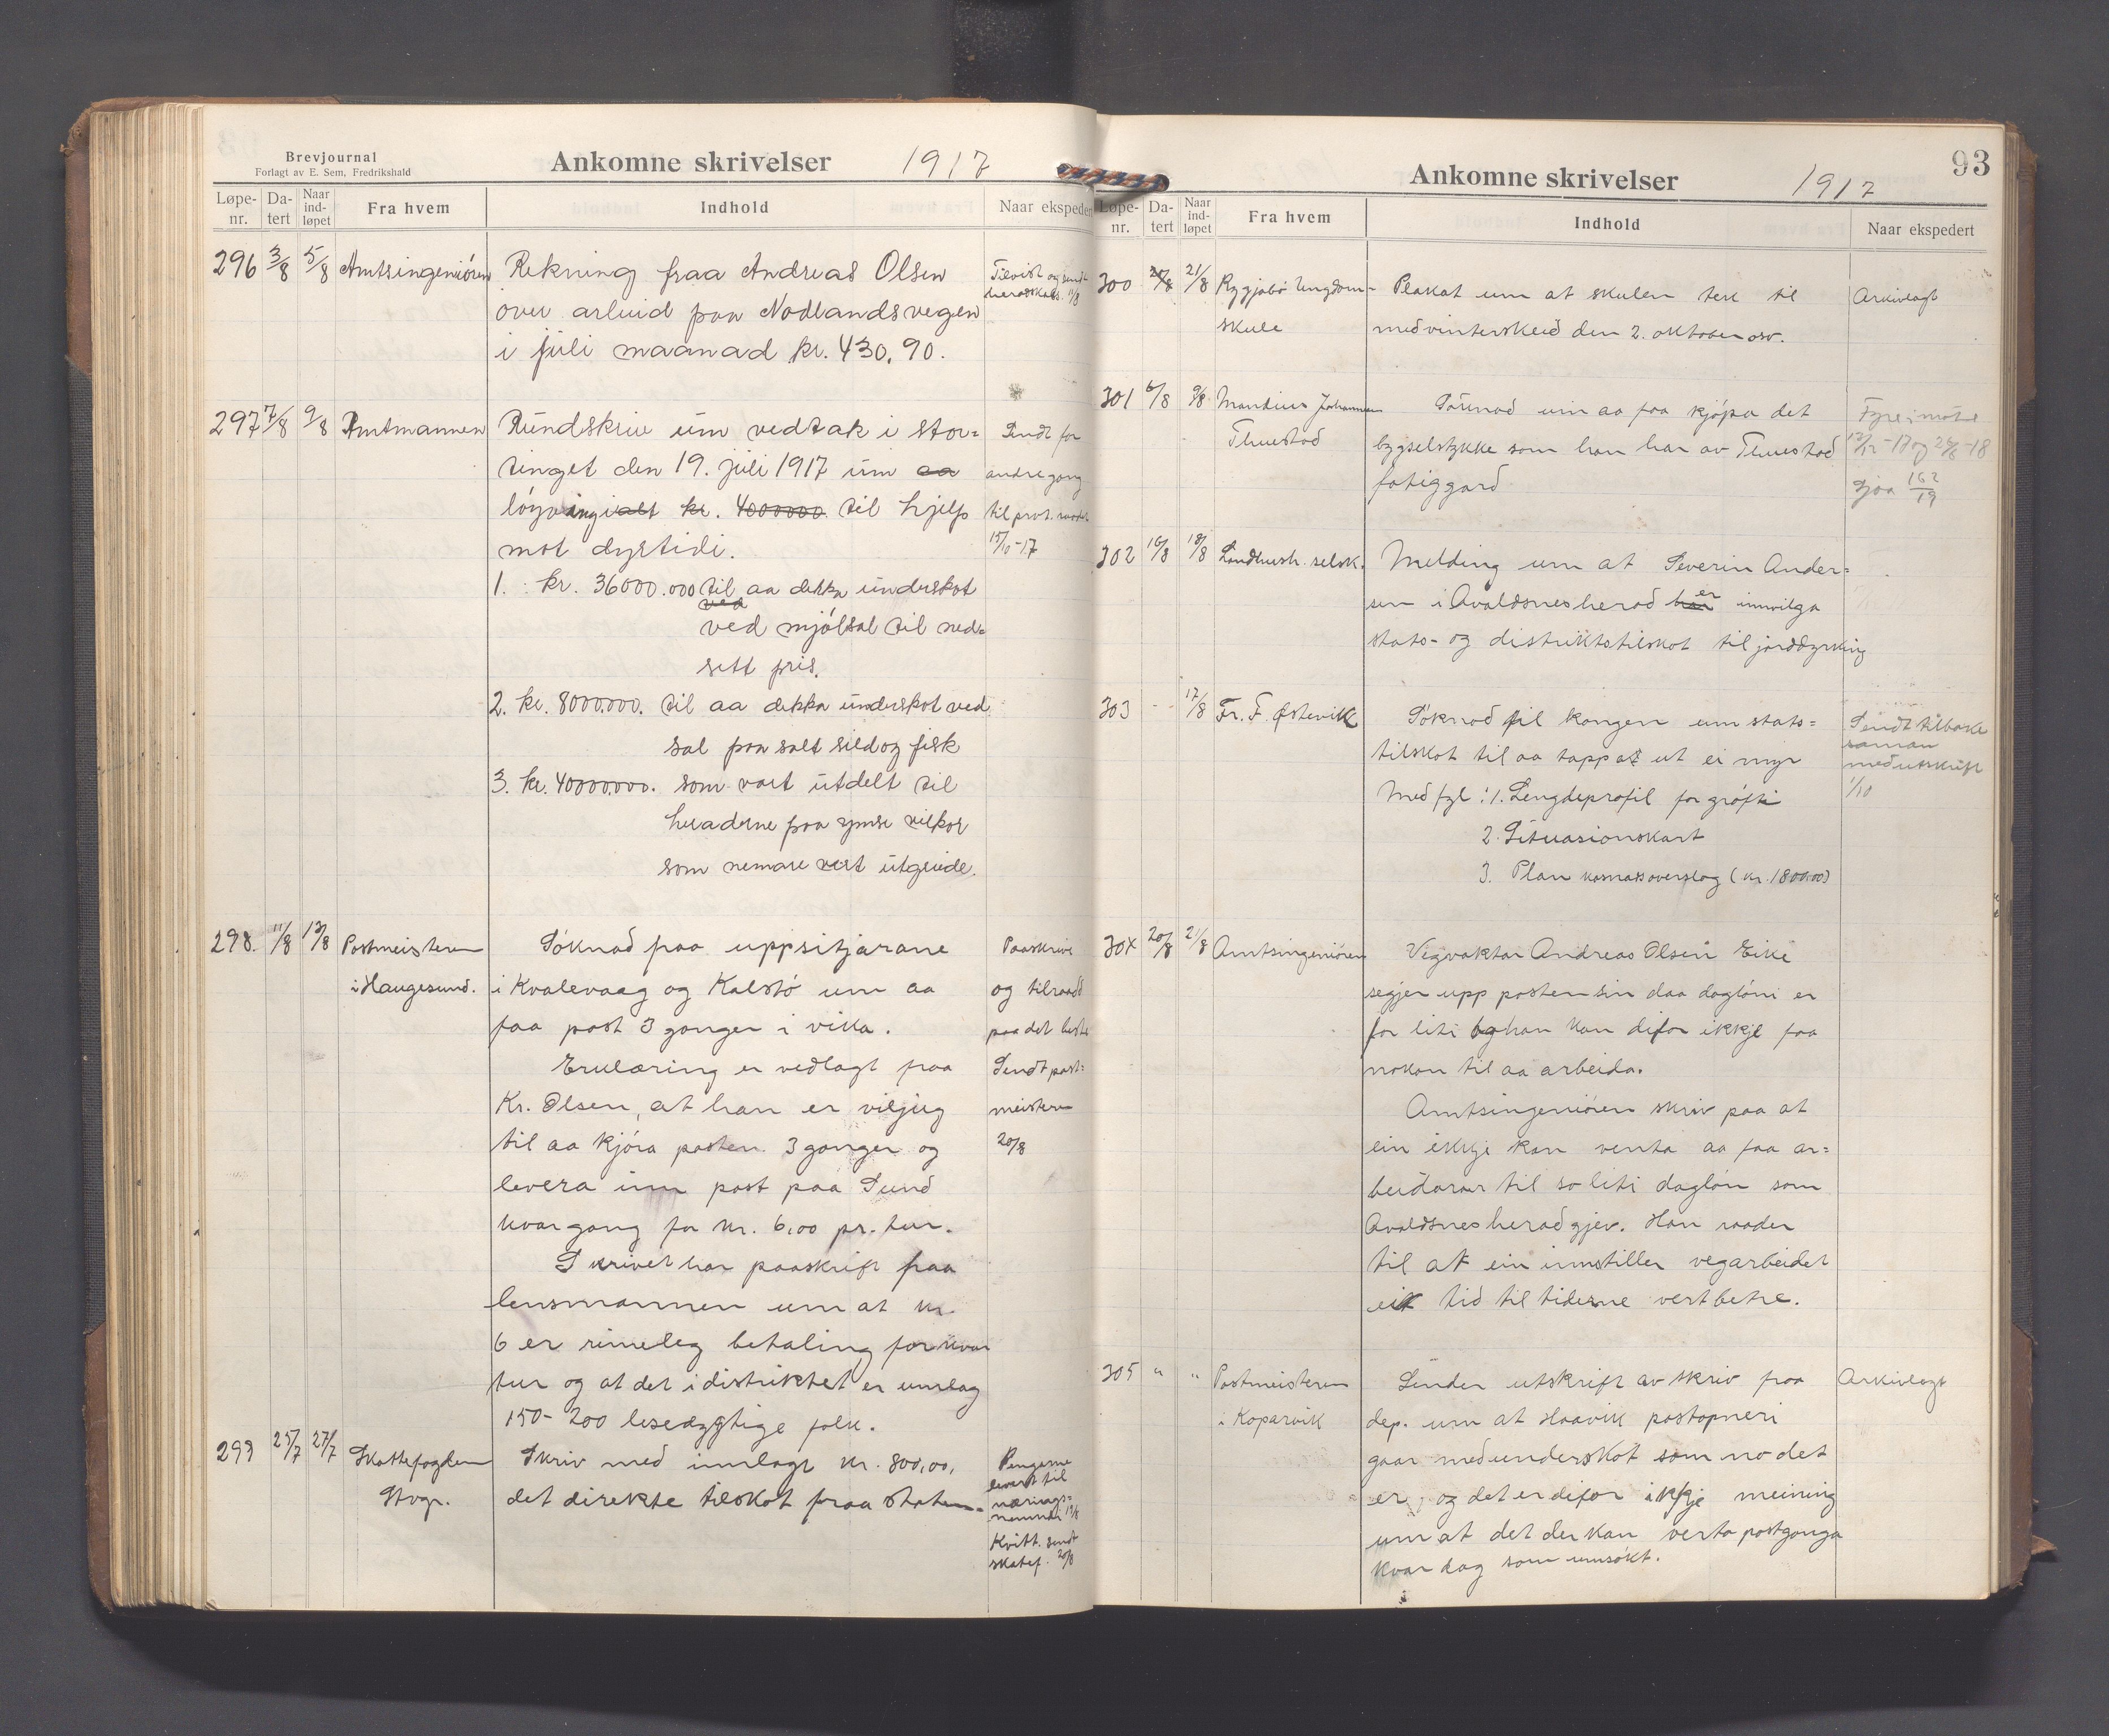 Brevjournal
Forlagt av E. Sem, Fredrikshald
Ankomne skrivelser 1917
Løpe-nr. Da-tert Naar ind-løpet Fra hvem Indhold Naar ekspedert
296 3/8 5/8 Amtsingeniören Rekning fraa Andreas Olsen
över arbeid paa Nodlandsvegen
i juli maanad kr. 430,90.
Tilvist og sendt
heradskass. 11/8
297 7/8 9/8 Amtmannen Rundskriv um vedtak i stor=
tinget den 19. juli 1917 um aa
löyving ialt kr. 4000000 til hjelp
mot dyrtidi.
Sendt for
andre gong
til prov. raadet
15/10-17
1. kr. 36000.000 til aa dekka underskot
ved
ved mjölsal til ned=
sett pris.
2. kr. 8000.000. til aa dekka underskot ved
sal paa salt sild og fisk
3. kr. 40000.000. som vart utdelt til
heraderne paa ymse vilkor
som nemare vert utgreide.
298. 11/8 13/8 Postmeisteren
i Haugesund.
Söknad fraa uppsitjarane
i Kvalevaag og Kalstö um aa
faa post 3 gonger i vika.
Erklæring er vedlagt fraa
Kr. Olsen, at han er viljug
til aa kjöra posten 3 gonger og
levera inn post paa Sund
kvar gong for kr. 6,00 pr. tur.
Skrivet har paaskrift fraa
lensmannen um at kr.
6 er rimeleg betaling for kvar
tur og at det i distriktet er umlag
150-200 lesedygtige folk.
Paaskrive
og tilraadd
paa det beste
Sendt post=
meisteren
20/8
299 25/7 27/7 Skattefogden
Stvgr.
Skriv med innlagt kr. 800,00,
det direkte tilskot fraa staten=
Pengerne
levert til
nærings=
nemndi 19/8
Kvitt. sendt
skatef. 20/8
93
Ankomne skrivelser 1917
Løpe-nr. Da-tert Naar ind-løpet Fra hvem Indhold Naar ekspedert
300 21/8 Rygjabö Ungdom=
skule
Plakat um at skulen tek til
med vinterskeid den 2. oktober osv.
Arkivlagt
301 6/8 9/8 Mandius Johannesen
Tluestad
Söknad um aa faa kjöpa det
bygselstykke som han har av Tluestad
fatiggard
Fyreimöte
12/12-17 og 24/6-18
Sjaa 162/19
302 16/8 18/8 Landhush. selsk. Melding um at Severin Ander=
sen i Avaldsnes herad har er innvilga
stats- og distriktstilskot til jorddyrking
303 - 17/8 Fr. F. Østevik Söknad til kongen um stats=
tilskot til aa tappat ut ei myr
Med fyl: 1. Lengdeprofil for gröfti
2. Situasionskart
3. Plan kosnadsoverslag (kr. 1800.00)
Sendt tilbake
saman
med utskrift
1/10
304 20/8 21/8 Amtsingeniören Vegvaktar Andreas Olsen Eike
segjer upp posten sin daa daglöni er
for liti og han kan difor ikkje faa
nokon til aa arbeida.
Amtsingeniören skriv paa at
ein ikkje kan venta aa faa ar=
beidarar til so liti daglön som
Avaldsnes herad gjev. Han raader
til at ein innstiller vegarbeidet
eit tid til tiderne vert betre.
305 " " Postmeisteren
i Koparvik
Sender utskrift av skriv fraa
dep. um at Haavik postopneri
gaar med underskot som no det
er, og det er difor ikkje meining
um at det der kan verta postgonga
kvar dag som umsökt.
Arkivlagt